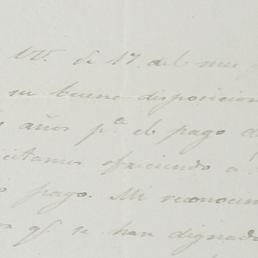 VV. de 17 del mes
su buena disposicion
años pª el pago de
citamos ofreciendo a
pago. Mi reconocim
qe se han dignado